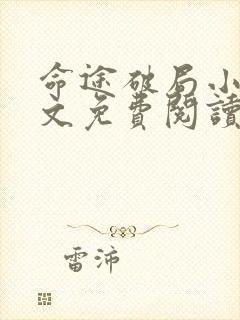 命途破局小
文免費閱讀
雷沛